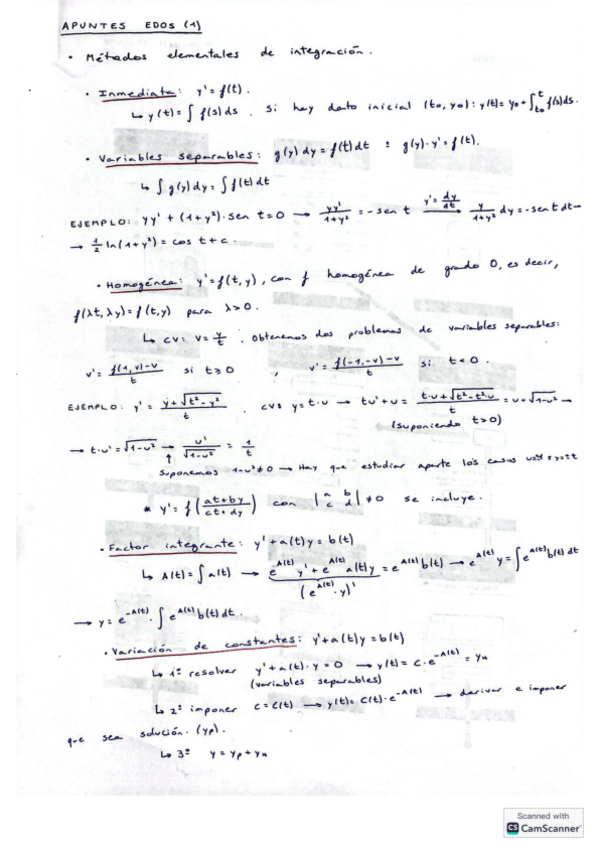 APUNTES EDOS (1)
• Métodos elementales de integración.
• Inmediata: y' = f(t).
↳ y(t) = ∫ f(s) ds. Si hay dato inicial (t₀, y₀): y(t) = y₀ + ∫_{t₀}^{t} f(s) ds.
• Variables separables: g(y) dy = f(t) dt : g(y)·y' = f(t).
↳ ∫ g(y) dy = ∫ f(t) dt
EJEMPLO: yy' + (1+y²)·sen t = 0 → yy'/(1+y²) = -sen t —y' = dy/dt→ y/(1+y²) dy = -sen t dt →
→ 1/2 ln(1+y²) = cos t + c.
• Homogénea: y' = f(t,y), con f homogénea de grado 0, es decir,
f(λt, λy) = f(t,y) para λ>0.
↳ CV: v = y/t. Obtenemos dos problemas de variables separables:
v' = (f(1,v)-v)/t si t ≥ 0 , v' = (f(-1,-v)-v)/t si t < 0.
EJEMPLO: y' = (y+√(t²-y²))/t. CV: y = t·u → tu'+u = (t·u+√(t²-t²·u))/t = u+√(1-u²) →
(suponiendo t>0)
→ t·u' = √(1-u²) → u'/√(1-u²) = 1/t
↑
Suponemos 1-u² ≠ 0 → Hay que estudiar aparte los casos
* y' = f((at+by)/(ct+dy)) con |a b; c d| ≠ 0 se incluye.
• Factor integrante: y' + a(t)y = b(t)
↳ A(t) = ∫ a(t) → e^{A(t)} y' + e^{A(t)} a(t)y = e^{A(t)} b(t) → e^{A(t)} y = ∫ e^{A(t)} b(t) dt
(e^{A(t)}·y)'
→ y = e^{-A(t)} · ∫ e^{A(t)} b(t) dt.
• Variación de constantes: y' + a(t)y = b(t)
↳ 1º resolver y' + a(t)·y = 0 → y(t) = C·e^{-A(t)} = y_H
(variables separables)
↳ 2º imponer C = C(t) → y(t) = C(t)·e^{-A(t)} → derivar e imponer
que sea solución. (yp).
↳ 3º y = yp + y_H
Scanned with
CS CamScanner